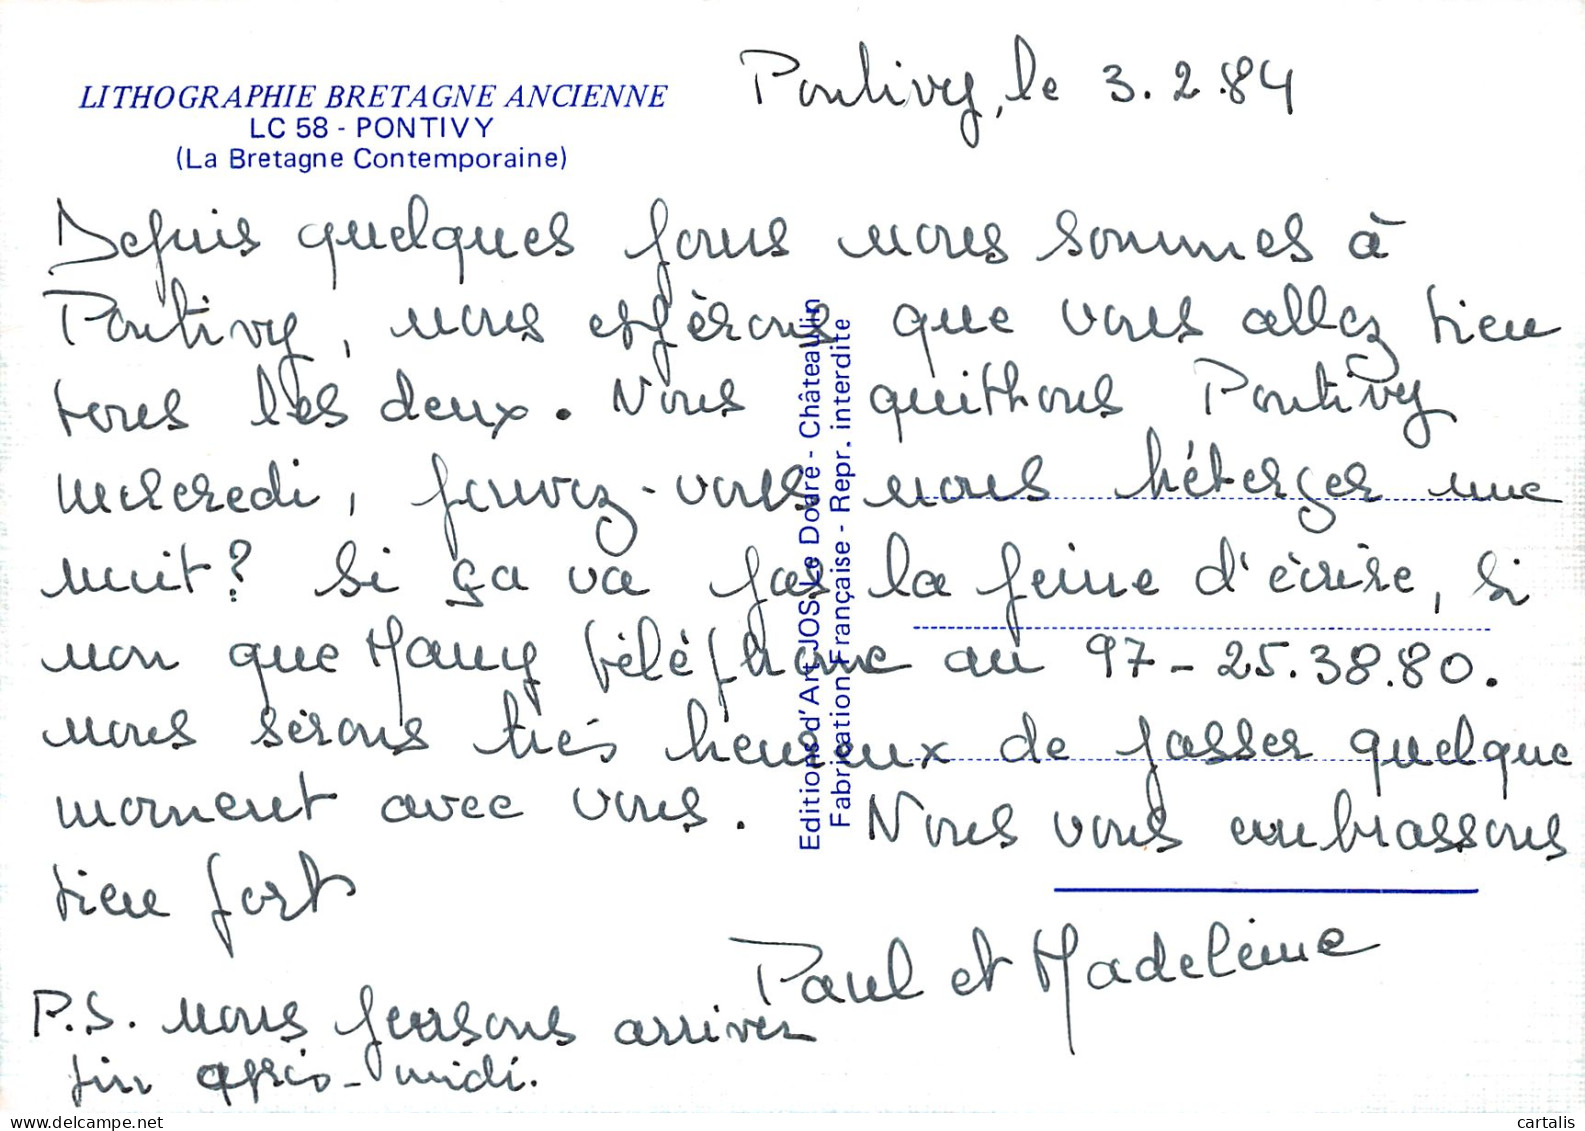 LITHOGRAPHIE BRETAGNE ANCIENNE
LC 58 - PONTIVY
(La Bretagne Contemporaine)
Pontivy, le 3.2.84
Depuis quelques jours nous sommes à
Pontivy, nous espérons que vous allez bien
tous les deux. Nous quittons Pontivy
mercredi, pouvez-vous nous héberger une
nuit? Si ça va pas la peine d'écrire, si
non que Many téléphone au 97-25.38.80.
nous sérons très heureux de passer quelque
moment avec vous. Nous vous embrassons
bien fort
Paul et Madeleine
P.S. nous pensons arriver
fin après-midi.
Editions d'Art JOS Le Doaré - Châteaulin
Fabrication Française - Repr. interdite
www.delcampe.net
cartalis